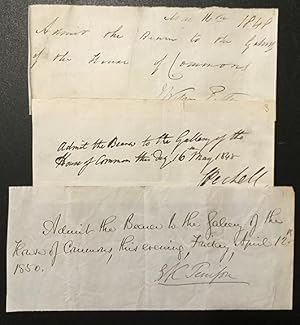 Admit the Bearer to the Gallery
of the House of Commons
Admit the Bearer to the Gallery of the
House of Commons this day 16 May 1848
Admit the Bearer to the Gallery of the
House of Commons, this evening, Friday, April 12th
1850.